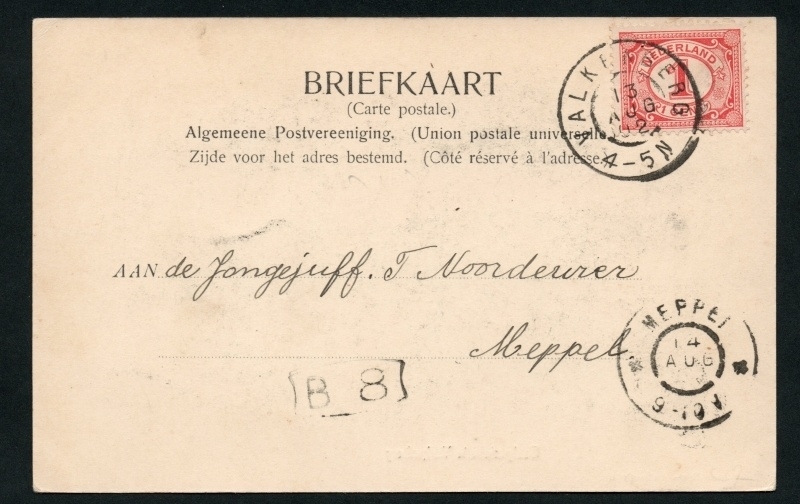 NEDERLAND
1
VALKENBERG
13
AUG
4-5N
BRIEFKAART
(Carte postale.)
Algemeene Postvereeniging. (Union postale universelle.
Zijde voor het adres bestemd. (Côté réservé à l'adresse.
AAN de Jongejuff. T Noordewier
Meppel.
MEPPEL
14
AUG
9-10V
B 8